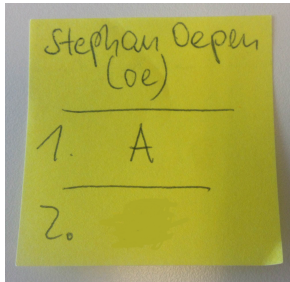 Stephan Oepen
(oe)
1. A
2.